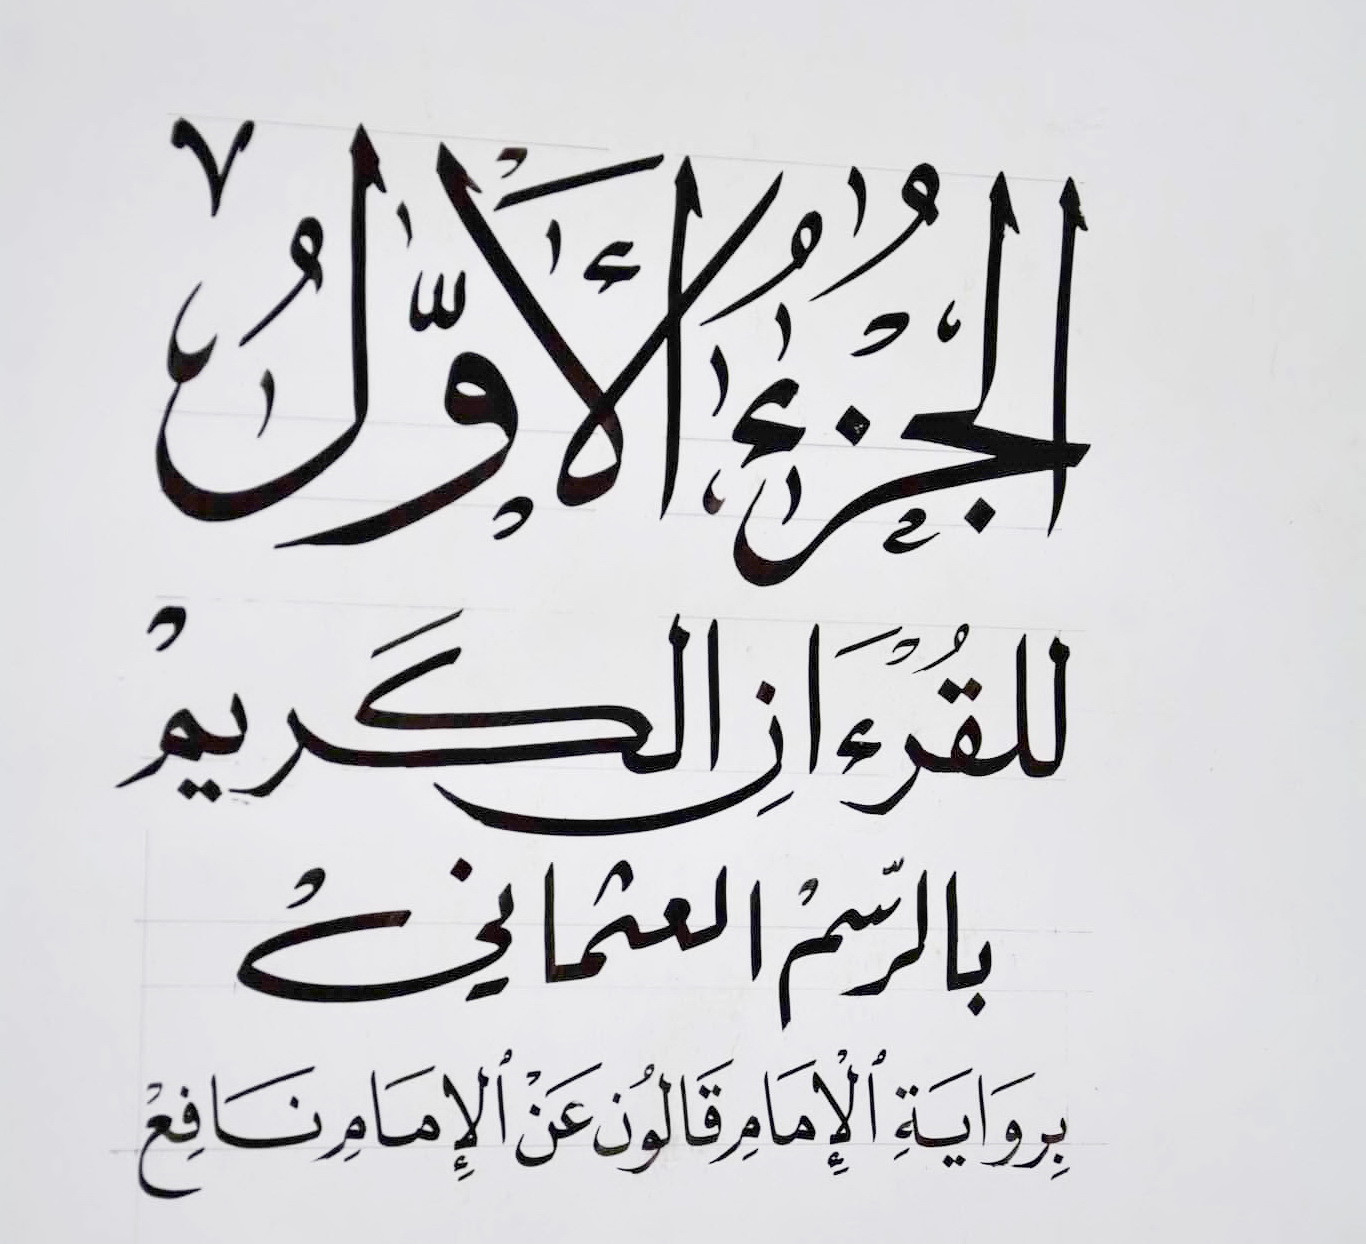 الجُزْءُ الأَوَّلُ
للقُرْءَانِ الكَريمْ
بالرّسمْ العثمانيْ
بِرِوَايَةِ ٱلْإِمَامِ قَالُون عَنْ ٱلإِمَامِ نَافِعْ